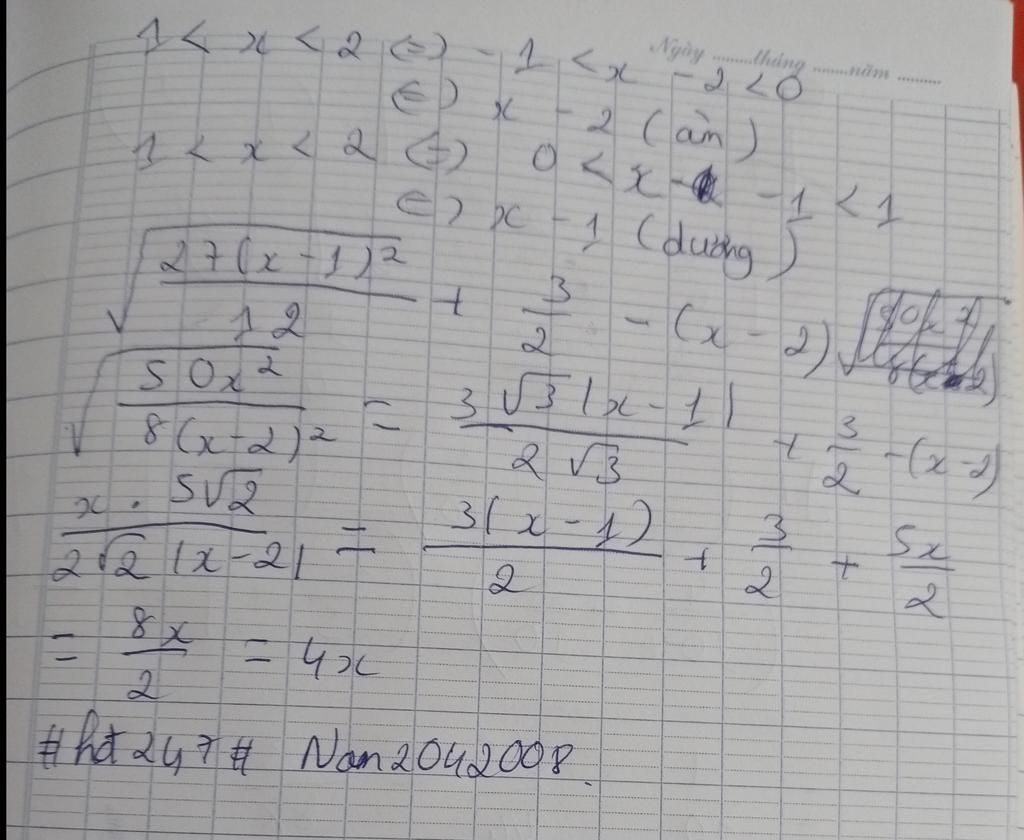 Ngày ......... tháng ......... năm .........
1 < x < 2 (=) - 1 < x - 2 < 0
(=) x - 2 (âm)
1 < x < 2 (=) 0 < x - 1 < 1
(=) x - 1 (dương)
√(27(x-1)²/12) + 3/2 - (x-2)
√(50x²/8(x-2)²) = 3√3|x-1|/2√3 + 3/2 - (x-2)
x . 5√2/2√2|x-2| = 3(x-1)/2 + 3/2 + 5x/2
= 8x/2 = 4x
#hđ247# Nan2042008